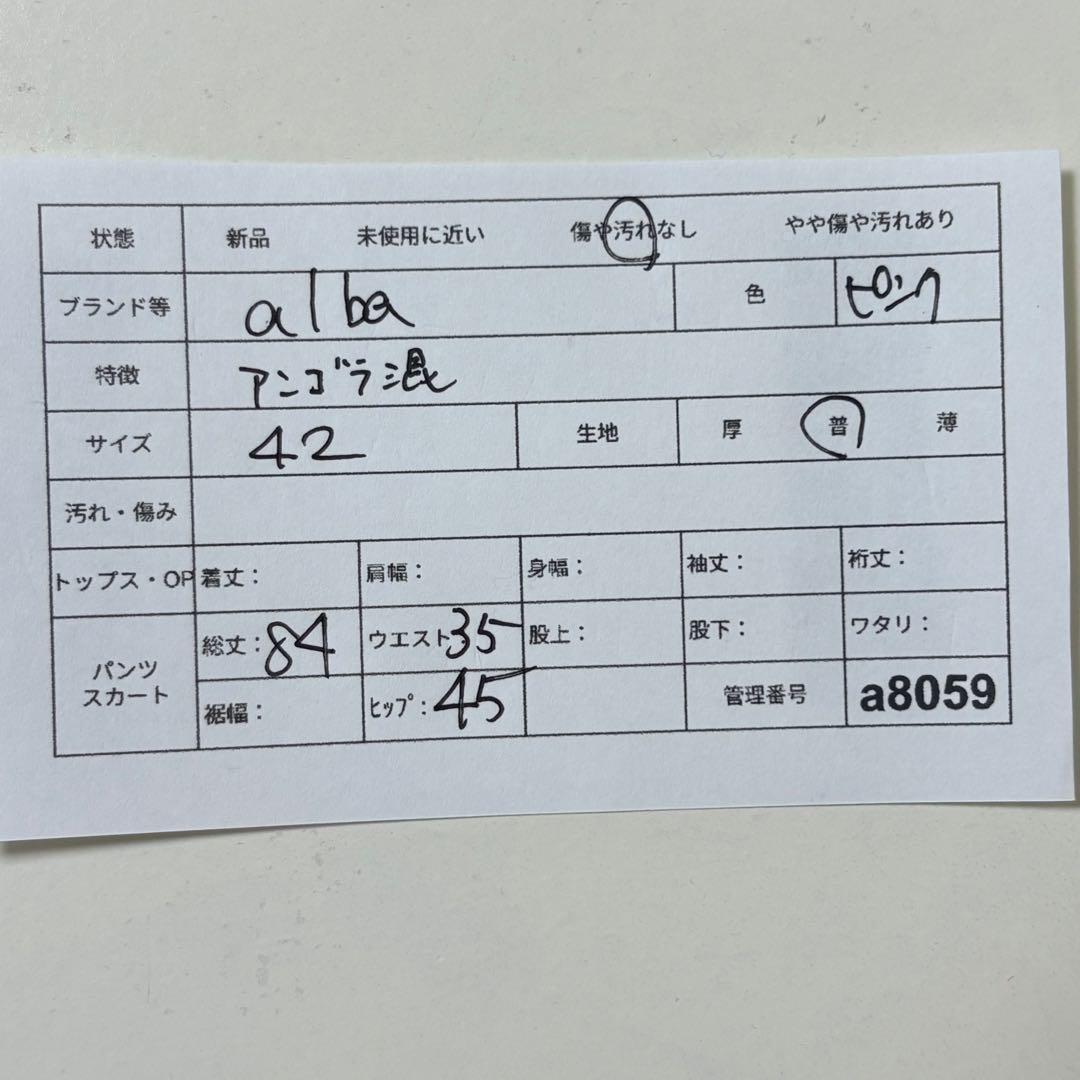 状態 新品 未使用に近い 傷や汚れなし やや傷や汚れあり
ブランド等 alba 色 ピンク
特徴 アンゴラ混
サイズ 42 生地 厚 普 薄
汚れ・傷み
トップス・OP 着丈： 肩幅： 身幅： 袖丈： 裄丈：
パンツ スカート 総丈：84 ウエスト：35 股上： 股下： ワタリ：
裾幅： ﾋｯﾌﾟ：45 管理番号 a8059